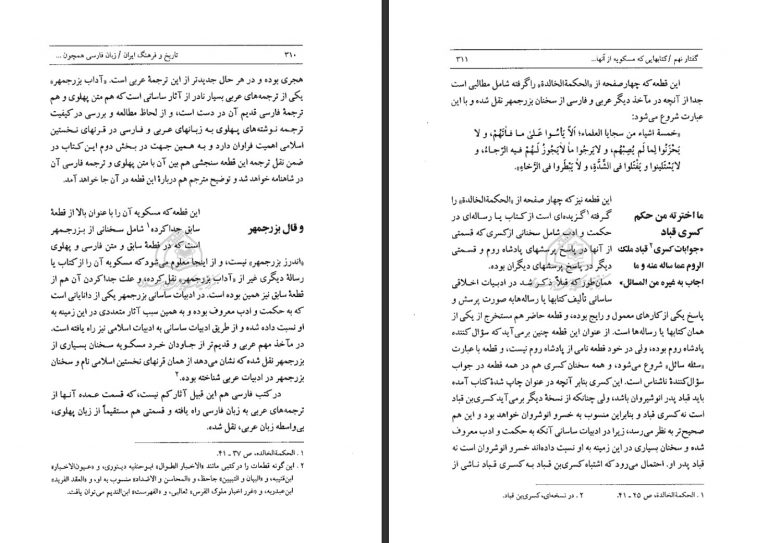 ۳۱۰
تاریخ و فرهنگ ایران / زبان فارسی همچون ...
هجری بوده و در هر حال جدیدتر از این ترجمهٔ عربی است. «آداب بزرجمهر»
یکی از ترجمه‌های عربی بسیار نادر از آثار ساسانی است که هم متن پهلوی و هم
ترجمهٔ فارسی قدیم آن در دست است، و از لحاظ مطالعه و بررسی در کیفیت
ترجمه نوشته‌های پهلوی به زبانهای عربی و فارسی در قرنهای نخستین
اسلامی اهمیت فراوان دارد و به همین جهت در بخش دوم این کتاب در
ضمن نقل ترجمه این قطعه سنجشی هم بین آن با متن پهلوی و ترجمه فارسی آن
در شاهنامه خواهد شد و توضیح مترجم هم دربارهٔ این قطعه در آن جا خواهد آمد.
و قال بزرجمهر
این قطعه که مسکویه آن را با عنوان بالا از قطعهٔ
سابق جدا کرده۱ شامل سخنانی از بزرجمهر
است که در قطعهٔ سابق و متن فارسی و پهلوی
«اندرز بزرجمهر» نیست، و از اینجا معلوم می‌شود که مسکویه آن را از کتاب یا
رسالهٔ دیگری غیر از «آداب بزرجمهر» نقل کرده، و علت جدا کردن آن هم از
قطعهٔ سابق نیز همین بوده است. در ادبیات ساسانی بزرجمهر یکی از دانایانی است
که به حکمت و ادب معروف بوده و به همین سبب آثار متعددی در این زمینه به
او نسبت داده شده و از طریق ادبیات ساسانی به ادبیات اسلامی نیز راه یافته است.
در مآخذ مهم عربی و قدیم‌تر از جاودان خرد مسکویه سخنان بسیاری از
بزرجمهر نقل شده که نشان می‌دهد از همان قرنهای نخستین اسلامی نام و سخنان
بزرجمهر در ادبیات عربی شناخته بوده.۲
در کتب فارسی هم این قبیل آثار کم نیست، که قسمت عمده آنها از
ترجمه‌های عربی به زبان فارسی راه یافته و قسمتی هم مستقیماً از زبان پهلوی،
بی‌واسطه زبان عربی، نقل شده.
۱ . الحکمةالخالده، ص ۳۷ ـ ۴۱.
۲ . این گونه قطعات را در کتبی مانند «الاخبار الطوال» ابوحنفیه دینوری، و «عیون‌الاخبار»
ابن‌قتیبه، و «البیان و التبیین» جاحظ، و «المحاسن و الاضداد» منسوب به او، و «العقد الفرید»
ابن‌عبدربه، و «غرر اخبار ملوک الفرس» ثعالبی، و «الفهرست» ابن‌الندیم می‌توان یافت.
گفتار نهم / کتابهایی که مسکویه از آنها...
۳۱۱
این قطعه که چهارصفحه از «الحکمةالخالده» را گرفته شامل مطالبی است
جدا از آنچه در مآخذ دیگر عربی و فارسی از سخنان بزرجمهر نقل شده و با این
عبارت شروع می‌شود:
«خمسة اشیاء من سجایا العلماء؛ اَلاّ یَأسُوا عَلیٰ ما فـاتَهُمْ، و لا
یَحْزَنُوا لِما لَم یُصِبْهُم، و لایَرجُوا ماٰ لایَجوزُ لَـهُمْ فـیه الرَّجاءُ، و
لایَسْتَلینوا و یَفْتَلوا فی الشّدَّةِ، و لا یَبْطَروا فی الرَّخاءِ».
ما اخترته من حکم
کسری قباد
«جوابات کسری۲ قباد ملک
الروم عما ساله عنه و ما
اجاب به غیره من المسائل»
این قطعه نیز که چهار صفحه از «الحکمةالخالدة» را
گرفته۱ گزیده‌ای است از کتاب یا رساله‌ای در
حکمت و ادب شامل سخنانی از کسری که قسمتی
از آنها در پاسخ پرسشهای پادشاه روم و قسمتی
دیگر در پاسخ پرسشهای دیگران بوده.
همان‌طور که قبلاً ذکر شد در ادبیات اخلاقی
ساسانی تألیف کتابها یا رساله‌هابه صورت پرسش و
پاسخ یکی از کارهای معمول و رایج بوده، و قطعه حاضر هم مستخرج از یکی از
همان کتابها یا رساله‌ها است. از عنوان این قطعه چنین برمی‌آید که سؤال کننده
پادشاه روم بوده، ولی در خود قطعه نامی از پادشاه روم نیست، و قطعه با عبارت
«سئله سائل» شروع می‌شود، و همه سخنان کسری هم در همه قطعه در جواب
سؤال‌کنندهٔ ناشناس است. این کسری بنابر آنچه در عنوان چاپ شدهٔ کتاب آمده
باید قباد پدر انوشیروان باشد، ولی چنانکه از نسخهٔ دیگر برمی‌آید کسری‌بن قباد
است نه کسری قباد و بنابراین منسوب به خسرو انوشروان خواهد بود و این هم
صحیح‌تر به نظر می‌رسد، زیرا در ادبیات ساسانی آنکه به حکمت و ادب معروف
شده و سخنان بسیاری در این زمینه به او نسبت داده‌اند خسرو انوشروان است نه
قباد پدر او. احتمال می‌رود که اشتباه کسری‌بن قباد به کسری قباد ناشی از
۱ . الحکمةالخالدة، ص ۲۵ ـ ۴۱.
۲ . در نسخه‌ای، کسری‌بن قباد.